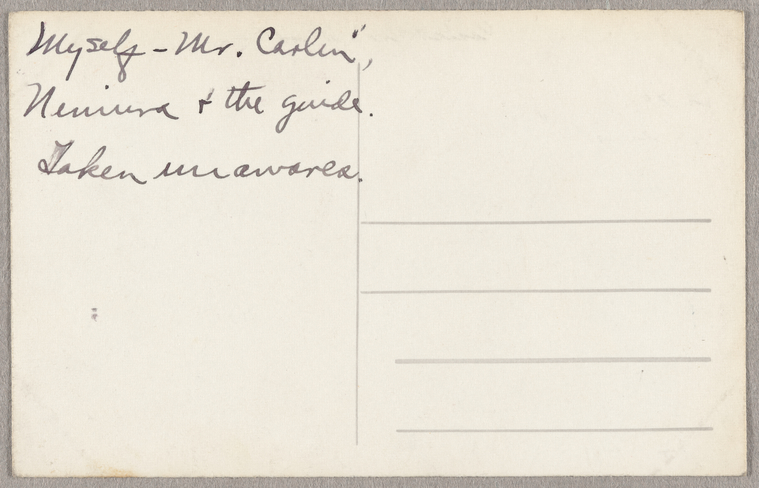 Myself - Mr. Carlin",
Nimura & the guide.
Taken unawares.